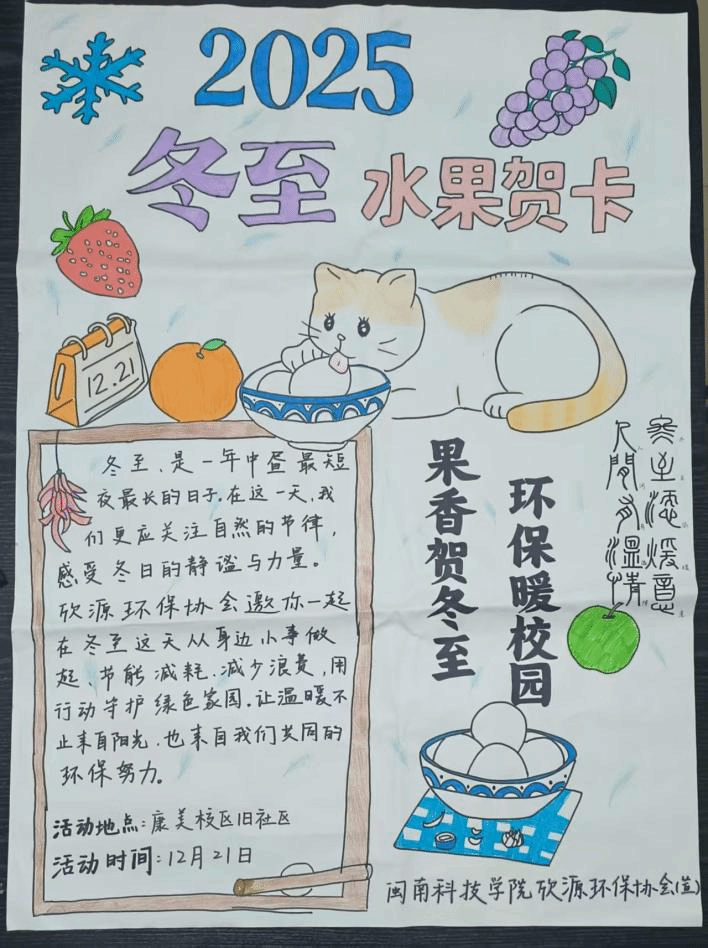 2025
冬至 水果贺卡
12.21
冬至,是一年中昼最短
夜最长的日子.在这一天,我
们更应关注自然的节律,
感受冬日的静谧与力量。
欣源环保协会邀你一起
在冬至这天从身边小事做
起,节能减耗、减少浪费,用
行动守护绿色家园.让温暖不
止来自阳光,也来自我们共同的
环保努力。
活动地点:康美校区旧社区
活动时间:12月21日
果香贺冬至
环保暖校园
冬至添煖意
人間有溫情
闽南科技学院欣源环保协会(宣)